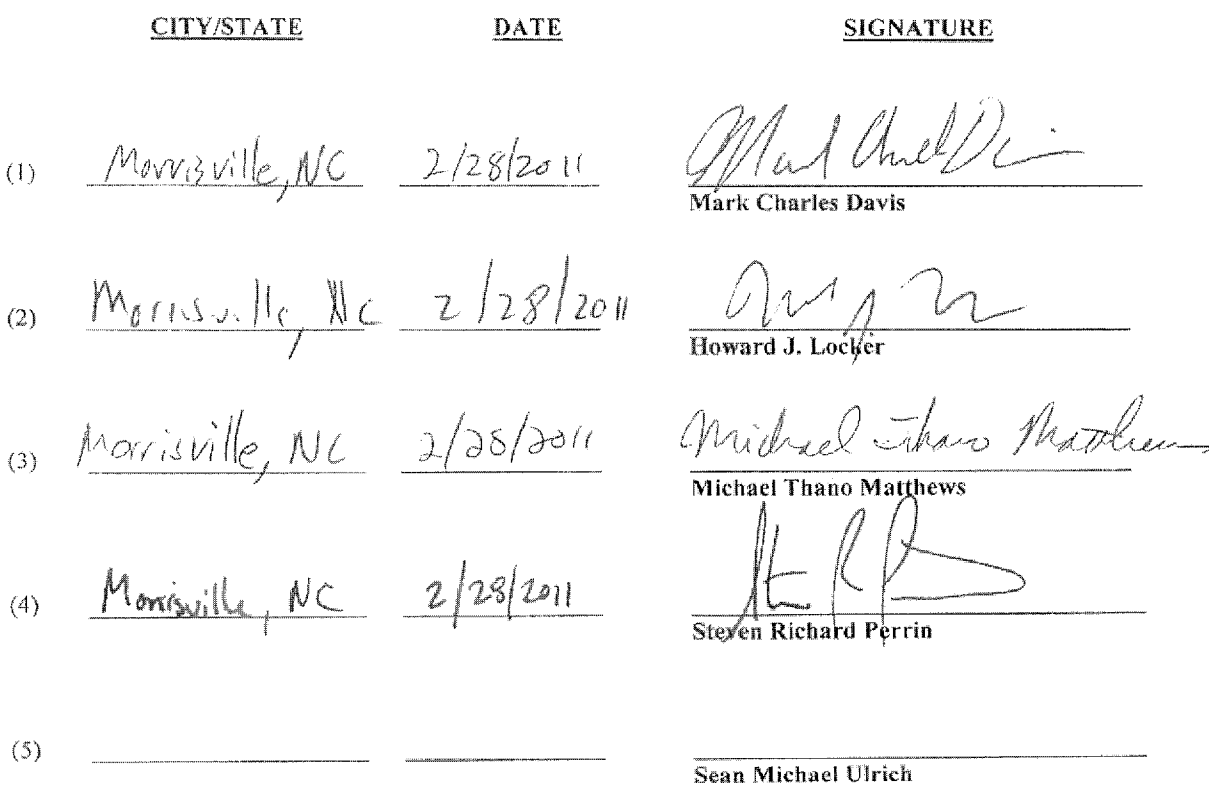 CITY/STATE DATE SIGNATURE
(1) Morrisville, NC 2/28/2011 Mark Charles Davis
Mark Charles Davis
(2) Morrisville, NC 2/28/2011
Howard J. Locker
(3) Morrisville, NC 2/28/2011 Michael Thano Matthews
Michael Thano Matthews
(4) Morrisville, NC 2/28/2011 Steven R Perrin
Steven Richard Perrin
(5)
Sean Michael Ulrich